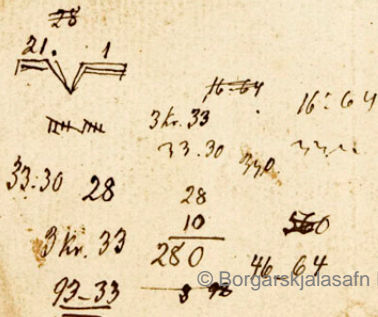 28
21. 1
16-64
3 kr. 33
16-64
33.30
330
33-30
28
28
10
280
3 kr. 33
560
46-64
93-33
8 98
© Borgarskjalasafn